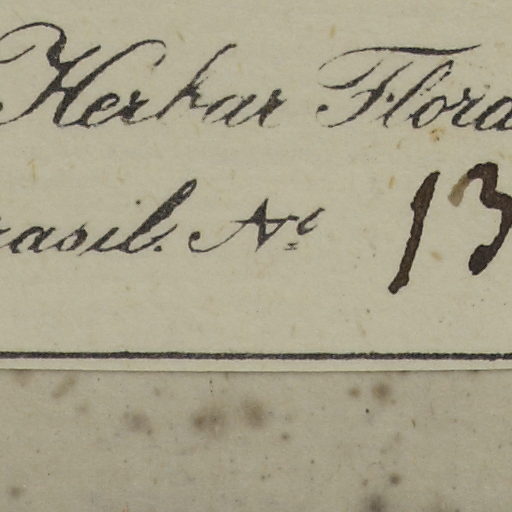 Herbar Flora
rasil. Nº 13